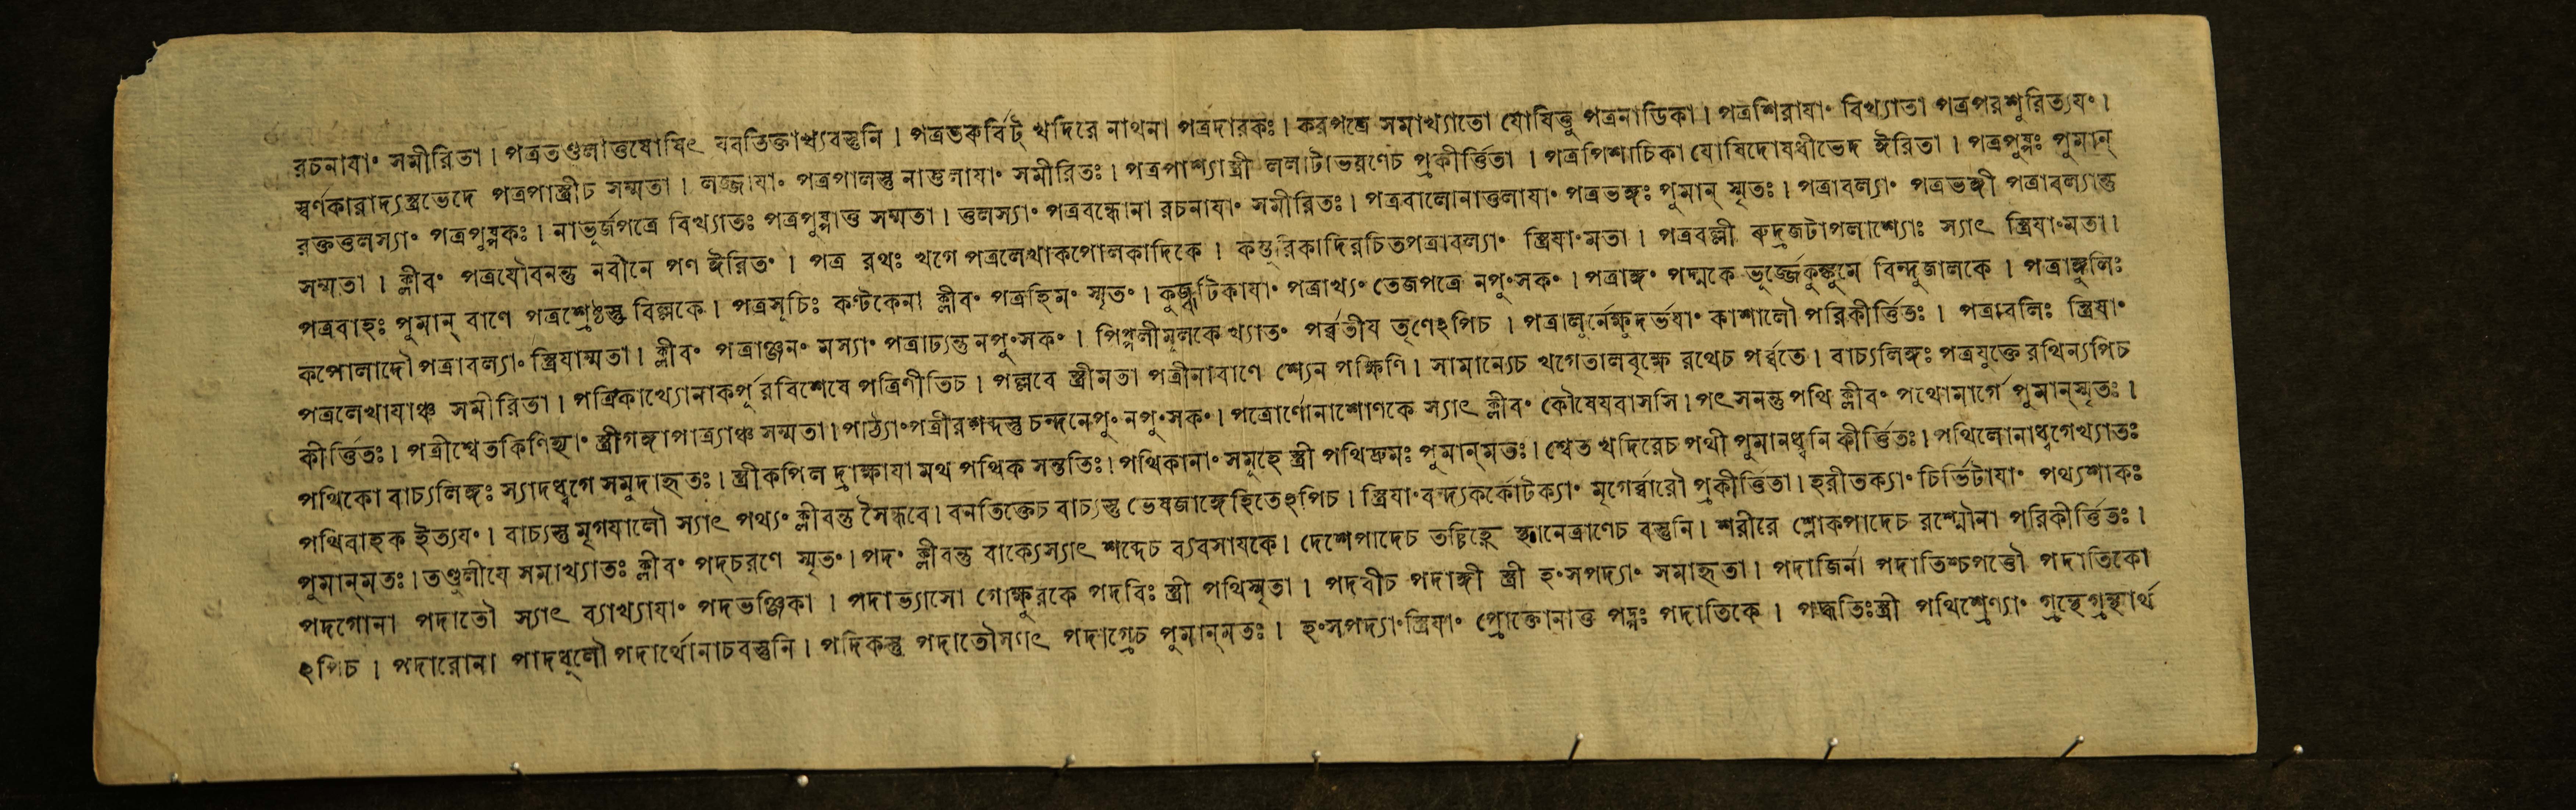 রচনাযাং সমীরিতা। পত্রতণ্ডুলাত্তযোষিৎ যবতিক্তাখ্যবস্তুনি। পত্রতর্কর্বিট্ খদিরে নাথনা পত্রদারকঃ। করপত্রে সমাখ্যাতো যোষিত্তু পত্রনাডিকা। পত্রশিরাযাং বিখ্যাতা পত্রপরশুরিত্যযং।
স্বর্ণকারাদ্যস্ত্রভেদে পত্রপাস্ত্রীচ সম্মতা। লজ্জাযাং পত্রপালস্তু নাত্তলাযাং সমীরিতঃ। পত্রপাশ্যাস্ত্রী ললাটাভরণেচ প্রকীর্ত্তিতা। পত্রপিশাচিকা যোষিদোষধীভেদ ঈরিতা। পত্রপুষ্পঃ পুমান্
রক্ততুলস্যাং পত্রপুষ্পকঃ। নাভূর্জপত্রে বিখ্যাতঃ পত্রপুষ্পাত্ত সম্মতা। তুলস্যাং পত্রবন্ধোনা রচনাযাং সমীরিতঃ। পত্রবালোনাত্তলাযাং পত্রভঙ্গঃ পুমান্ স্মৃতঃ। পত্রাবল্যাং পত্রভঙ্গী পত্রাবল্যান্তু
সম্মতা। ক্লীবং পত্রযৌবনন্তু নবীনে পণ ঈরিতং। পত্র রথঃ খগে পত্রলেখাকপোলকাদিকে। কস্তুরিকাদিরচিতপত্রাবল্যাং স্ত্রিযাংমতা। পত্রবল্লী রুদ্রজটাপলাশ্যোঃ স্যাৎ স্ত্রিযাংমতা।
পত্রবাহঃ পুমান্ বাণে পত্রশ্রেষ্ঠস্তু বিল্লকে। পত্রসূচিঃ কণ্টকেনা ক্লীবং পত্রহিমং স্মৃতং। কুজ্ঝটিকাযাং পত্রাখ্যং তেজপত্রে নপুংসকং। পত্রাঙ্গং পদ্মকে ভূর্জ্জেকুঙ্কুমে বিন্দুজালকে। পত্রাঙ্গুলিঃ
কপোলাদৌ পত্রাবল্যাং স্ত্রিযাম্মতা। ক্লীবং পত্রাঞ্জনং মস্যাং পত্রাঢ্যন্তু নপুংসকং। পিপ্পলীমূলকে খ্যাতং পর্ব্বতীয তৃণেঽপিচ। পত্রালুর্নেক্ষুদর্ভযাং কাশালৌ পরিকীর্ত্তিতঃ। পত্রাবলিঃ স্ত্রিযাং
পত্রলেখাযাঞ্চ সমীরিতা। পত্রিকাখ্যোনাকর্পূরবিশেষে পত্রিণীতিচ। পল্লবে স্ত্রীমতা পত্রীনাবাণে শ্যেন পক্ষিণি। সামান্যেচ খগেতালবৃক্ষে রথেচ পর্ব্বতে। বাচ্যলিঙ্গঃ পত্রযুক্তে রথিন্যপিচ
কীর্ত্তিতঃ। পত্রীশ্বেতকিণিহ্যাং স্ত্রীগঙ্গাপাত্র্যাঞ্চ সম্মতা। পাঠ্যাংপত্রীরশব্দস্তু চন্দনেপুং নপুংসকং। পত্রোর্ণোনাশোণকে স্যাৎ ক্লীবং কৌষেযবাসসি। পৎসনন্তু পথি ক্লীবং পথোমার্গে পুমান্‌স্মৃতঃ।
পথিকো বাচ্যলিঙ্গঃ স্যাদধ্বগে সমুদাহৃতঃ। স্ত্রীকপিল দ্রাক্ষাযা মথ পথিক সন্ততিঃ। পথিকানাং সমূহে স্ত্রী পথিদ্রুমঃ পুমান্‌মতঃ। শ্বেত খদিরেচ পথী পুমানধ্বনি কীর্ত্তিতঃ। পথিলোনাধ্বগেখ্যাতঃ
পথিবাহক ইত্যযং। বাচ্যস্তু মৃগযালৌ স্যাৎ পথ্যং ক্লীবন্তু সৈন্ধবে। বনতিক্তেচ বাচ্যস্তু ভেষজাঙ্গেহিতেঽপিচ। স্ত্রিযাংবন্দ্যকর্কোটক্যাং মৃগের্ব্বারৌ প্রকীর্ত্তিতা। হরীতক্যাং চির্ভিটাযাং পথ্যশাকঃ
পুমান্‌মতঃ। তণ্ডুলীযে সমাখ্যাতঃ ক্লীবং পদ্চরণে স্মৃতং। পদং ক্লীবন্তু বাক্যেস্যাৎ শব্দেচ ব্যবসাযকে। দেশেপাদেচ তচ্চিহ্নে স্থানেত্রাণেচ বস্তুনি। শরীরে শ্লোকপাদেচ রশ্মৌনা পরিকীর্ত্তিতঃ।
পদগোনা পদাতৌ স্যাৎ ব্যাখ্যাযাং পদভঞ্জিকা। পদাভ্যাসো গোক্ষুরকে পদবিঃ স্ত্রী পথিস্মৃতা। পদবীচ পদাঙ্গী স্ত্রী হংসপদ্যাং সমাহৃতা। পদাজির্না পদাতিশ্চপত্তৌ পদাতিকো
ঽপিচ। পদারোনা পাদধূলৌ পদার্থোনাচবস্তুনি। পদিকস্তু পদাতৌস্যাৎ পদাগ্রেচ পুমান্‌মতঃ। হংসপদ্যাংস্ত্রিযাং প্রোক্তোনাত্ত পদ্গঃ পদাতিকে। পদ্ধতিঃস্ত্রী পথিশ্রেণ্যাং গ্রন্থেগ্রন্থার্থ